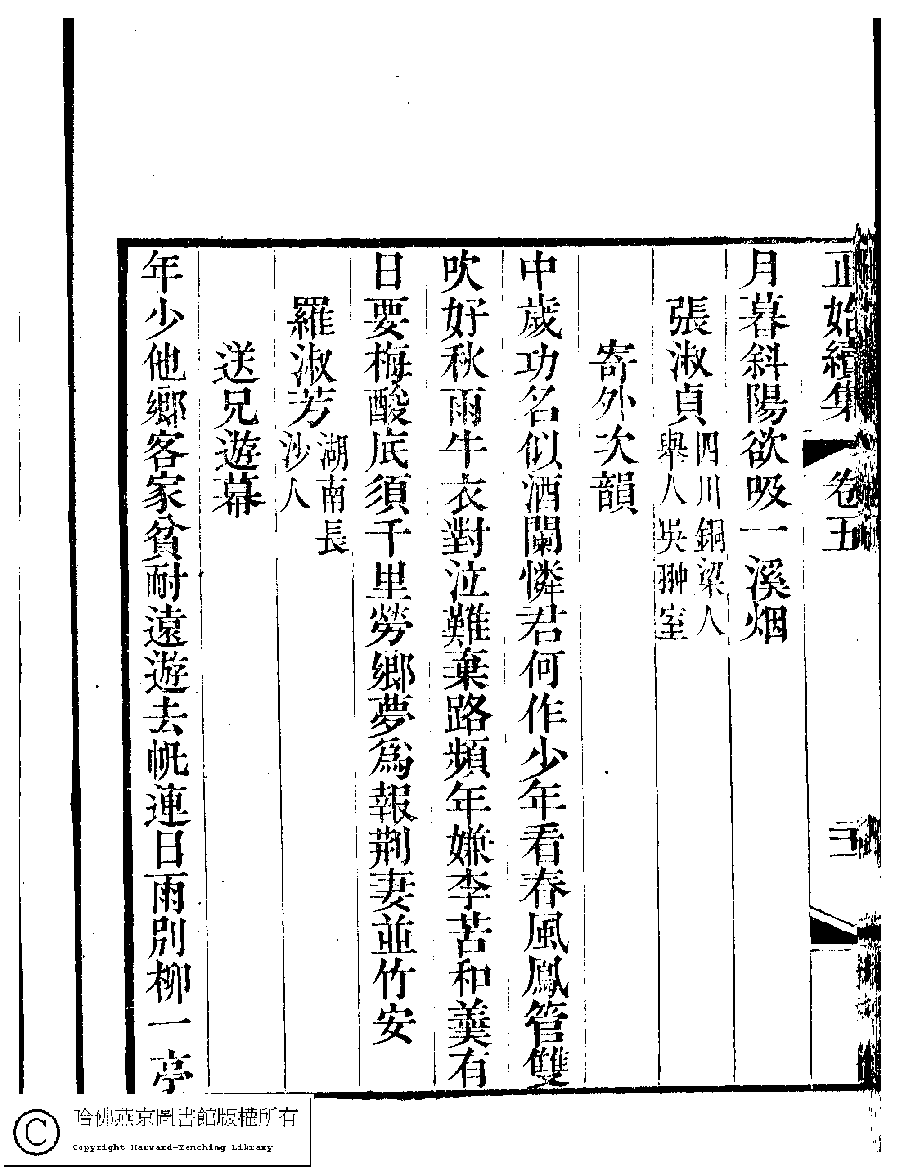 正始續集 卷五 三
月暮斜陽欲吸一溪烟
張淑貞 四川銅梁人
舉人吳翀室
寄外次韻
中歲功名似酒闌憐君何作少年看春風鳳管雙
吹好秋雨牛衣對泣難棄路頻年嫌李苦和羹有
日要梅酸底須千里勞鄉夢爲報荆妻並竹安
羅淑芳 湖南長
沙人
送兄遊幕
年少他鄉客家貧耐遠遊去帆連日雨別柳一亭
哈佛燕京圖書館版權所有
Copyright Harvard-Yenching Library